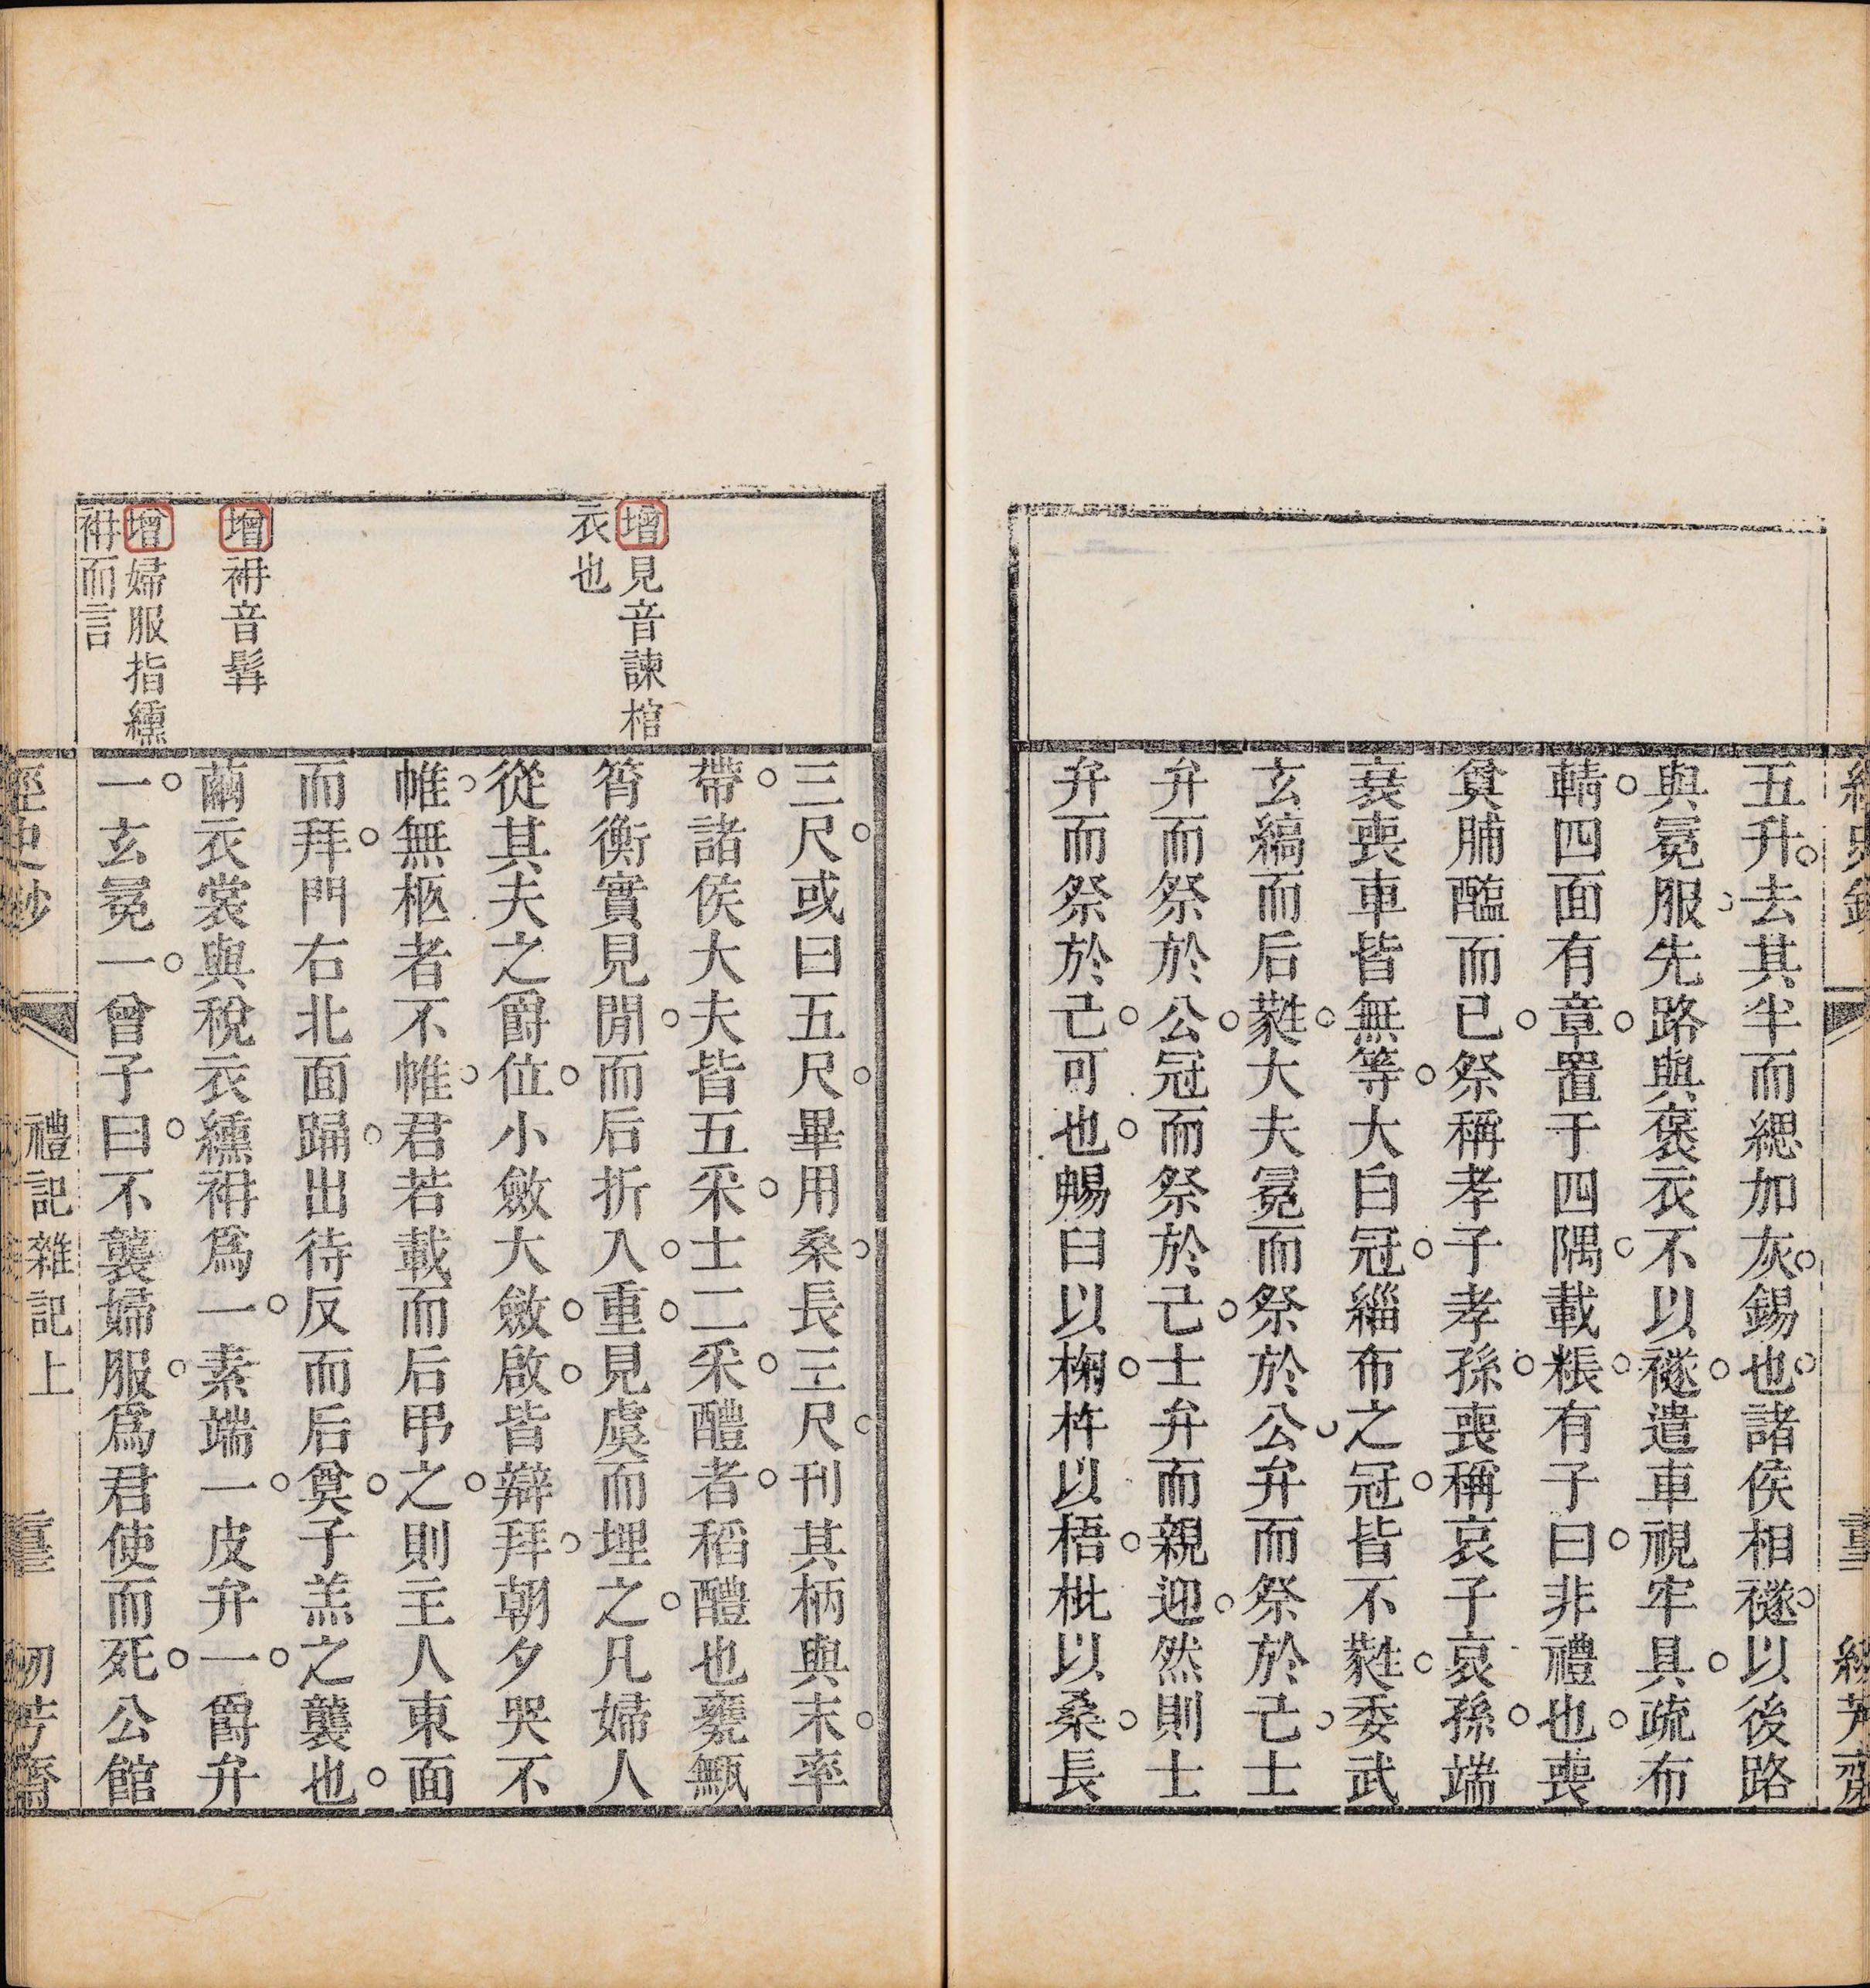 五升去其半而緦加灰錫也諸侯相襚以後路
與冕服先路與褒衣不以襚遣車視牢具疏布
輤四面有章置于四隅載粻有子曰非禮也喪
奠脯醢而已祭稱孝子孝孫喪稱哀子哀孫端
衰喪車皆無等大白冠緇布之冠皆不蕤委武
玄縞而后蕤大夫冕而祭於公弁而祭於己士
弁而祭於公冠而祭於己士弁而親迎然則士
弁而祭於己可也暢曰以椈杵以梧枇以桑長
增見音諫棺
衣也
增袡音髯
增婦服指纁
袡而言
三尺或曰五尺畢用桑長三尺刊其柄與末率
帶諸侯大夫皆五采士二采醴者稻醴也甕甒
筲衡實見閒而后折入重見虞而埋之凡婦人
從其夫之爵位小斂大斂啟皆辯拜朝夕哭不
帷無柩者不帷君若載而后弔之則主人東面
而拜門右北面踊出待反而后奠子羔之襲也
繭衣裳與稅衣纁袡為一素端一皮弁一爵弁
一玄冕一曾子曰不襲婦服為君使而死公館
經史鈔
禮記雜記上